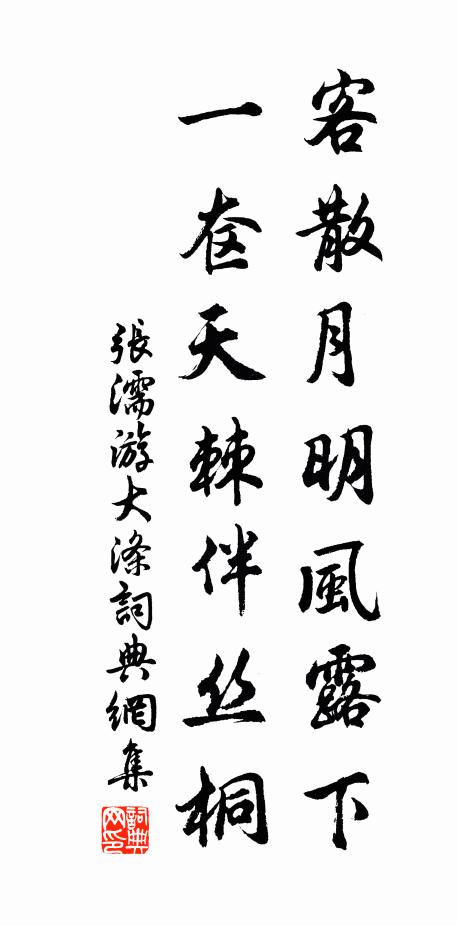 客散月明風露下
一奁天棘伴丝桐
張濡游大滌詞典網集
詞典網印